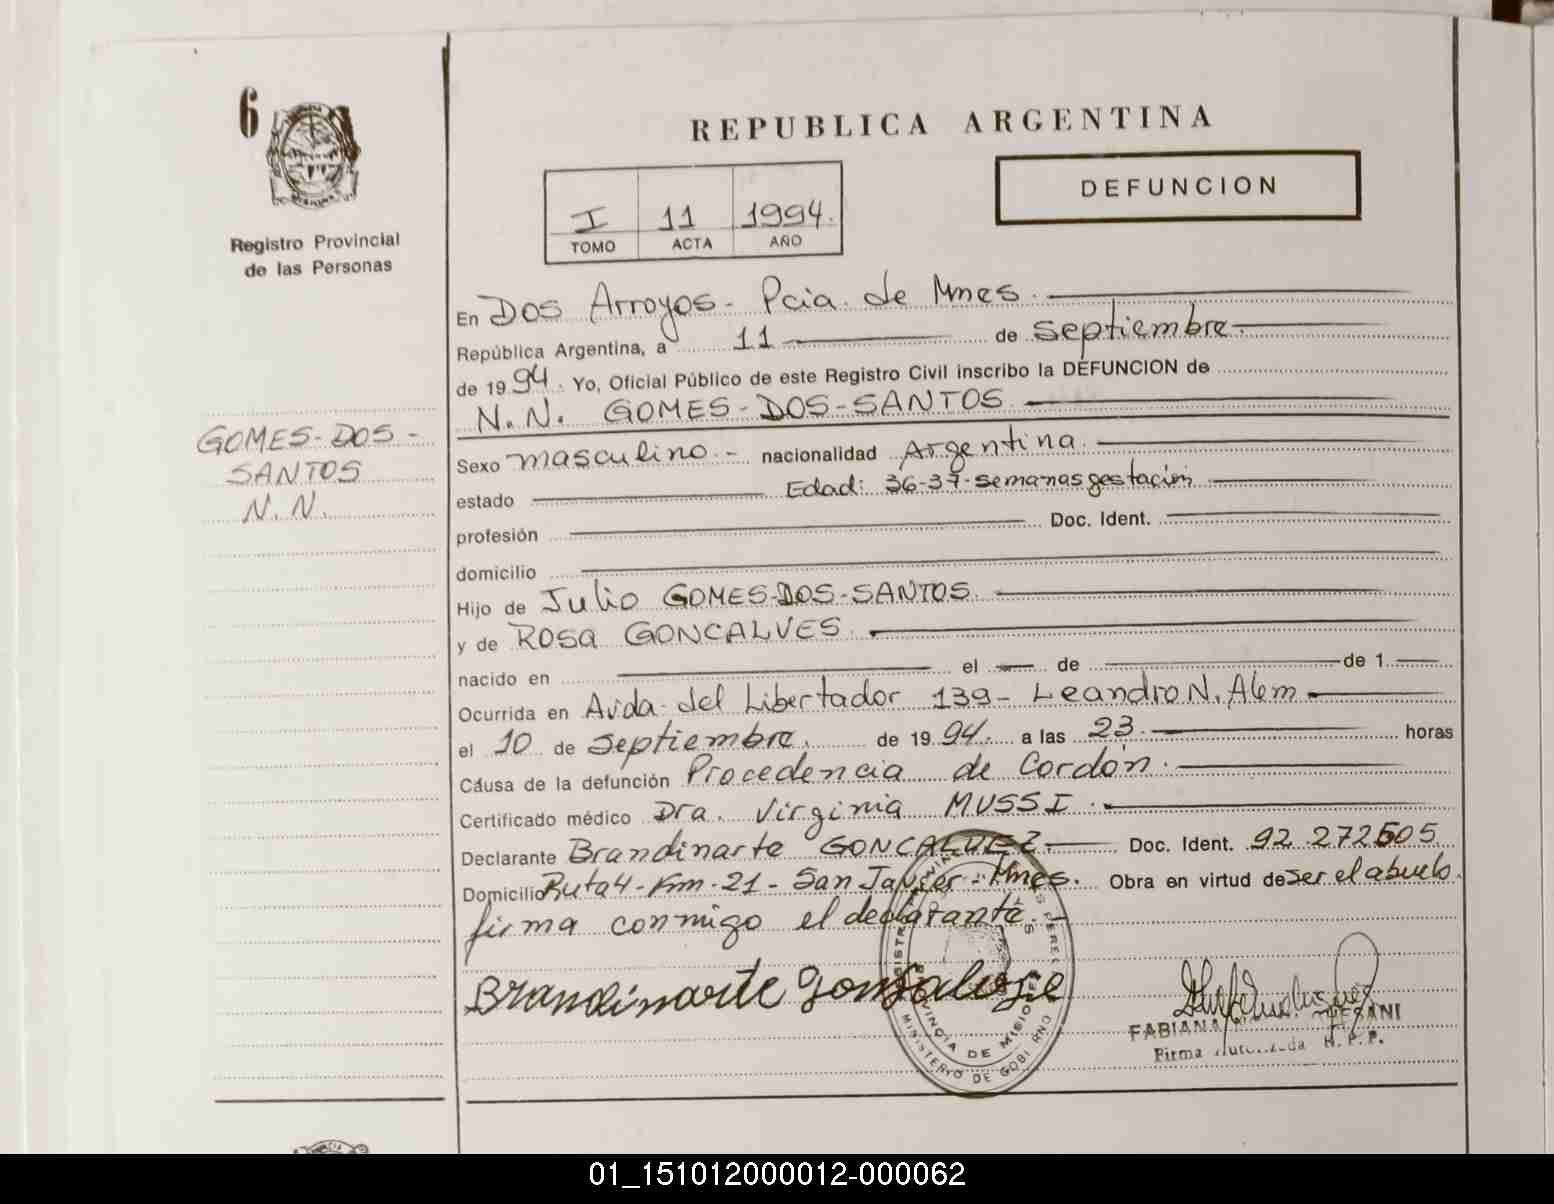 6
Registro Provincial
de las Personas
GOMES-DOS-
SANTOS
N.N.
REPUBLICA ARGENTINA
I 11 1994.
TOMO ACTA AÑO
DEFUNCION
En Dos Arroyos - Pcia. de Mnes.
República Argentina, a 11 de septiembre
de 1994. Yo, Oficial Público de este Registro Civil inscribo la DEFUNCION de
N.N. GOMES-DOS-SANTOS
Sexo masculino.- nacionalidad Argentina.
estado Edad: 36-37-semanas gestación
profesión Doc. Ident.
domicilio
Hijo de Julio GOMES-DOS-SANTOS
y de ROSA GONCALVES.
nacido en el de de 1
Ocurrida en Avda. del Libertador 139- Leandro N. Alem
el 10 de septiembre. de 1994. a las 23. horas
Causa de la defunción Procedencia de Cordón.
Certificado médico Dra. Virginia MUSSI.
Declarante Brandinarte GONCALVEZ. Doc. Ident. 92.272605
Domicilio Ruta 4-Km-21- San Javier-Mnes. Obra en virtud de ser el abuelo.
firma conmigo el declarante.-
Brandinarte
FABIANA
Firma H.P.P.
PROVINCIA DE MISIONES
MINISTERIO DE
01_151012000012-000062